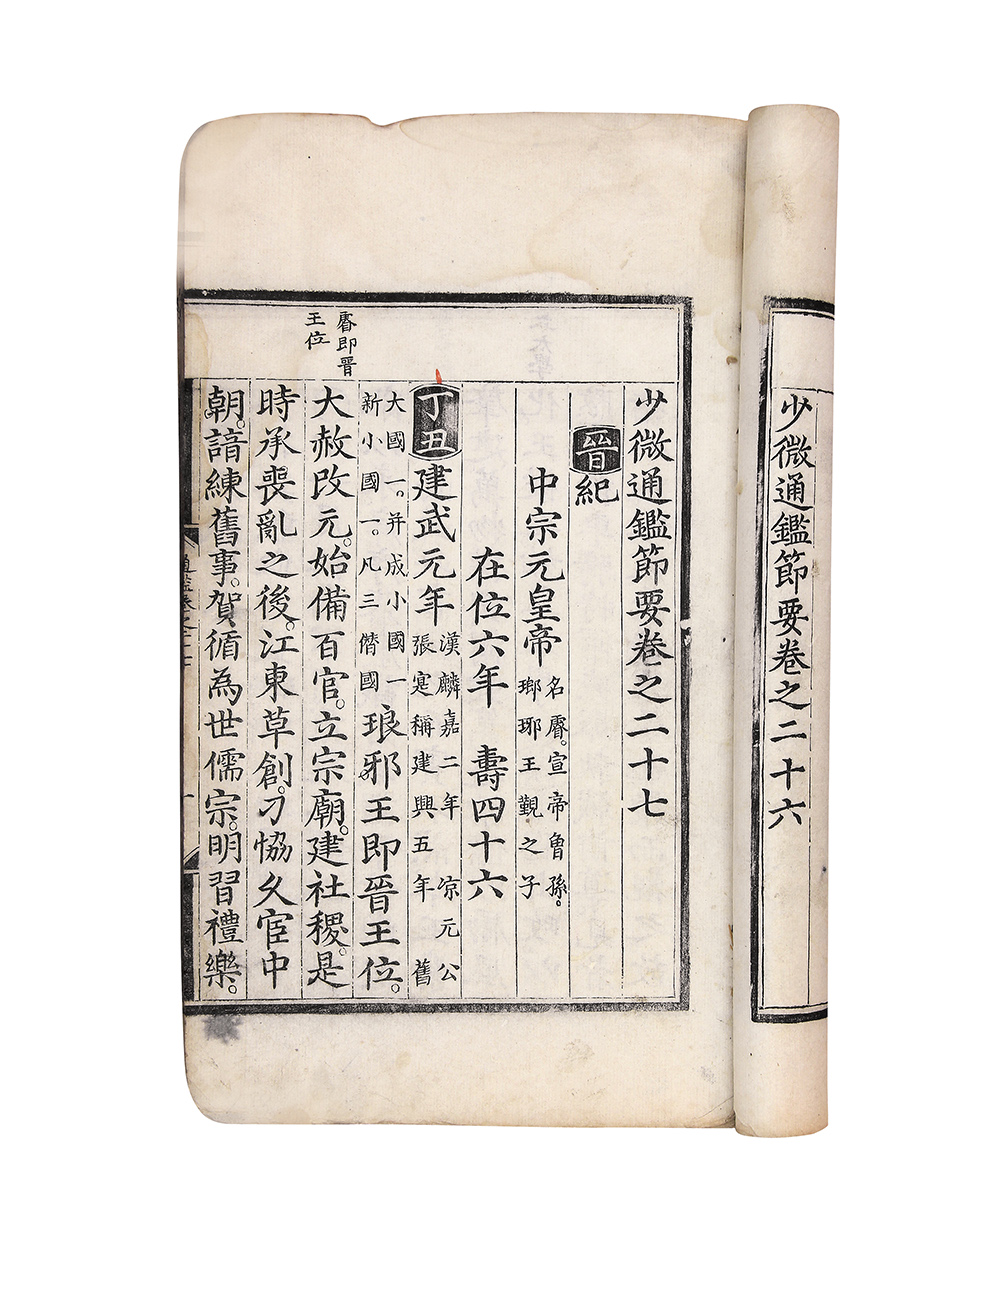 少微通鑑節要卷之二十六
少微通鑑節要卷之二十七
晉紀
中宗元皇帝
名睿。宣帝曾孫。
瑯琊王覲之子
在位六年 壽四十六
丁丑建武元年
漢麟嘉二年 凉元公
張寔稱建興五年 舊
大國一。并成小國一
新小國一。凡三僭國
琅邪王即晉王位。
睿即晉
王位
大赦改元。始備百官。立宗廟。建社稷。是
時承喪亂之後。江東草創。刁恊久宦中
朝。諳練舊事。賀循為世儒宗。明習禮樂。